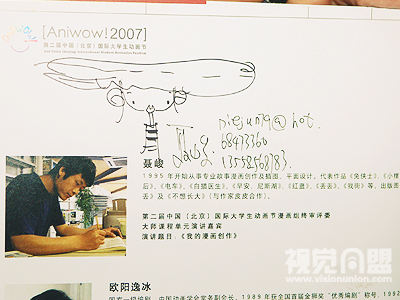 [Aniwow!2007]
第二届中国（北京）国际大学生动画节
聂峻
1995年开始从事专业故事漫画创作及插图、平面设计。代表作品《兔侠士》、《小狸
后》、《电车》、《白猫医生》、《早安，尼斯湖》、《红蓝》、《丢丢》、《我街》等，出版图
丢》及《不想长大》（与作家皮皮合作）。
第二届中国（北京）国际大学生动画节漫画组终审评委
大师课程单元演讲嘉宾
演讲题目：《我的漫画创作》
欧阳逸冰
国家一级编剧，中国动画学会常务副会长，1989年获全国首届金狮奖“优秀编剧”称号，1992
视觉同盟
www.visionunion.com